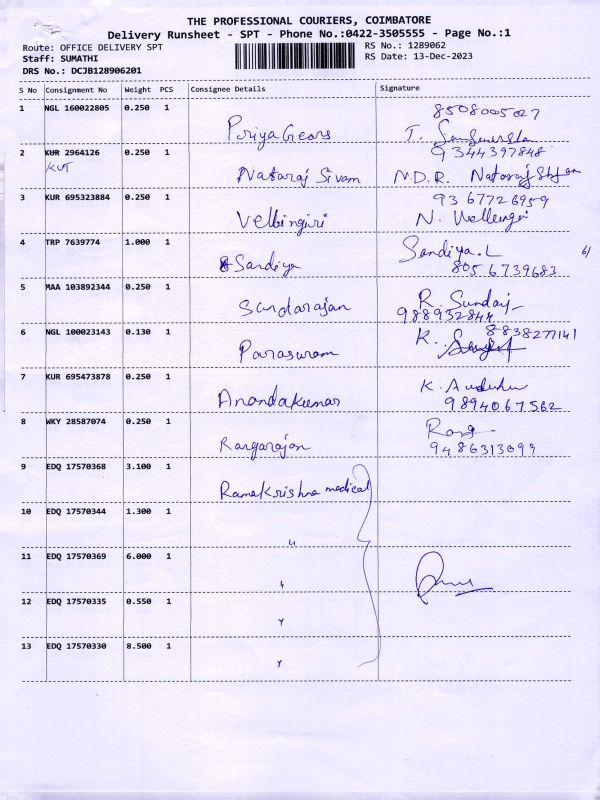 THE PROFESSIONAL COURIERS, COIMBATORE
Delivery Runsheet - SPT - Phone No.:0422-3505555 - Page No.:1
Route: OFFICE DELIVERY SPT
RS No.: 1289062
Staff: SUMATHI
RS Date: 13-Dec-2023
DRS No.: DCJB128906201
S No Consignment No Weight PCS Consignee Details Signature
1 NGL 160022805 0.250 1 Priya Gears 8508005027
T.
2 KUR 2964126 0.250 1 Nataraj Sivam 9344397848
KUT N.D.R. Nataraj
3 KUR 695323884 0.250 1 Velbingiri 9367726959
N.
4 TRP 7639774 1.000 1 Sandiya Sandiya.L
8056739683
5 MAA 103892344 0.250 1 Sundarajan R. Sundaj
988932844
6 NGL 100023143 0.130 1 Parasuram K. 8838277141
7 KUR 695473878 0.250 1 Anandakumar K.
9894067562
8 WKY 28587074 0.250 1 Rangarajan Rang
9486313099
9 EDQ 17570368 3.100 1 Ramakrishna medical
10 EDQ 17570344 1.300 1 "
11 EDQ 17570369 6.000 1 "
12 EDQ 17570335 0.550 1 "
13 EDQ 17570330 8.500 1 "